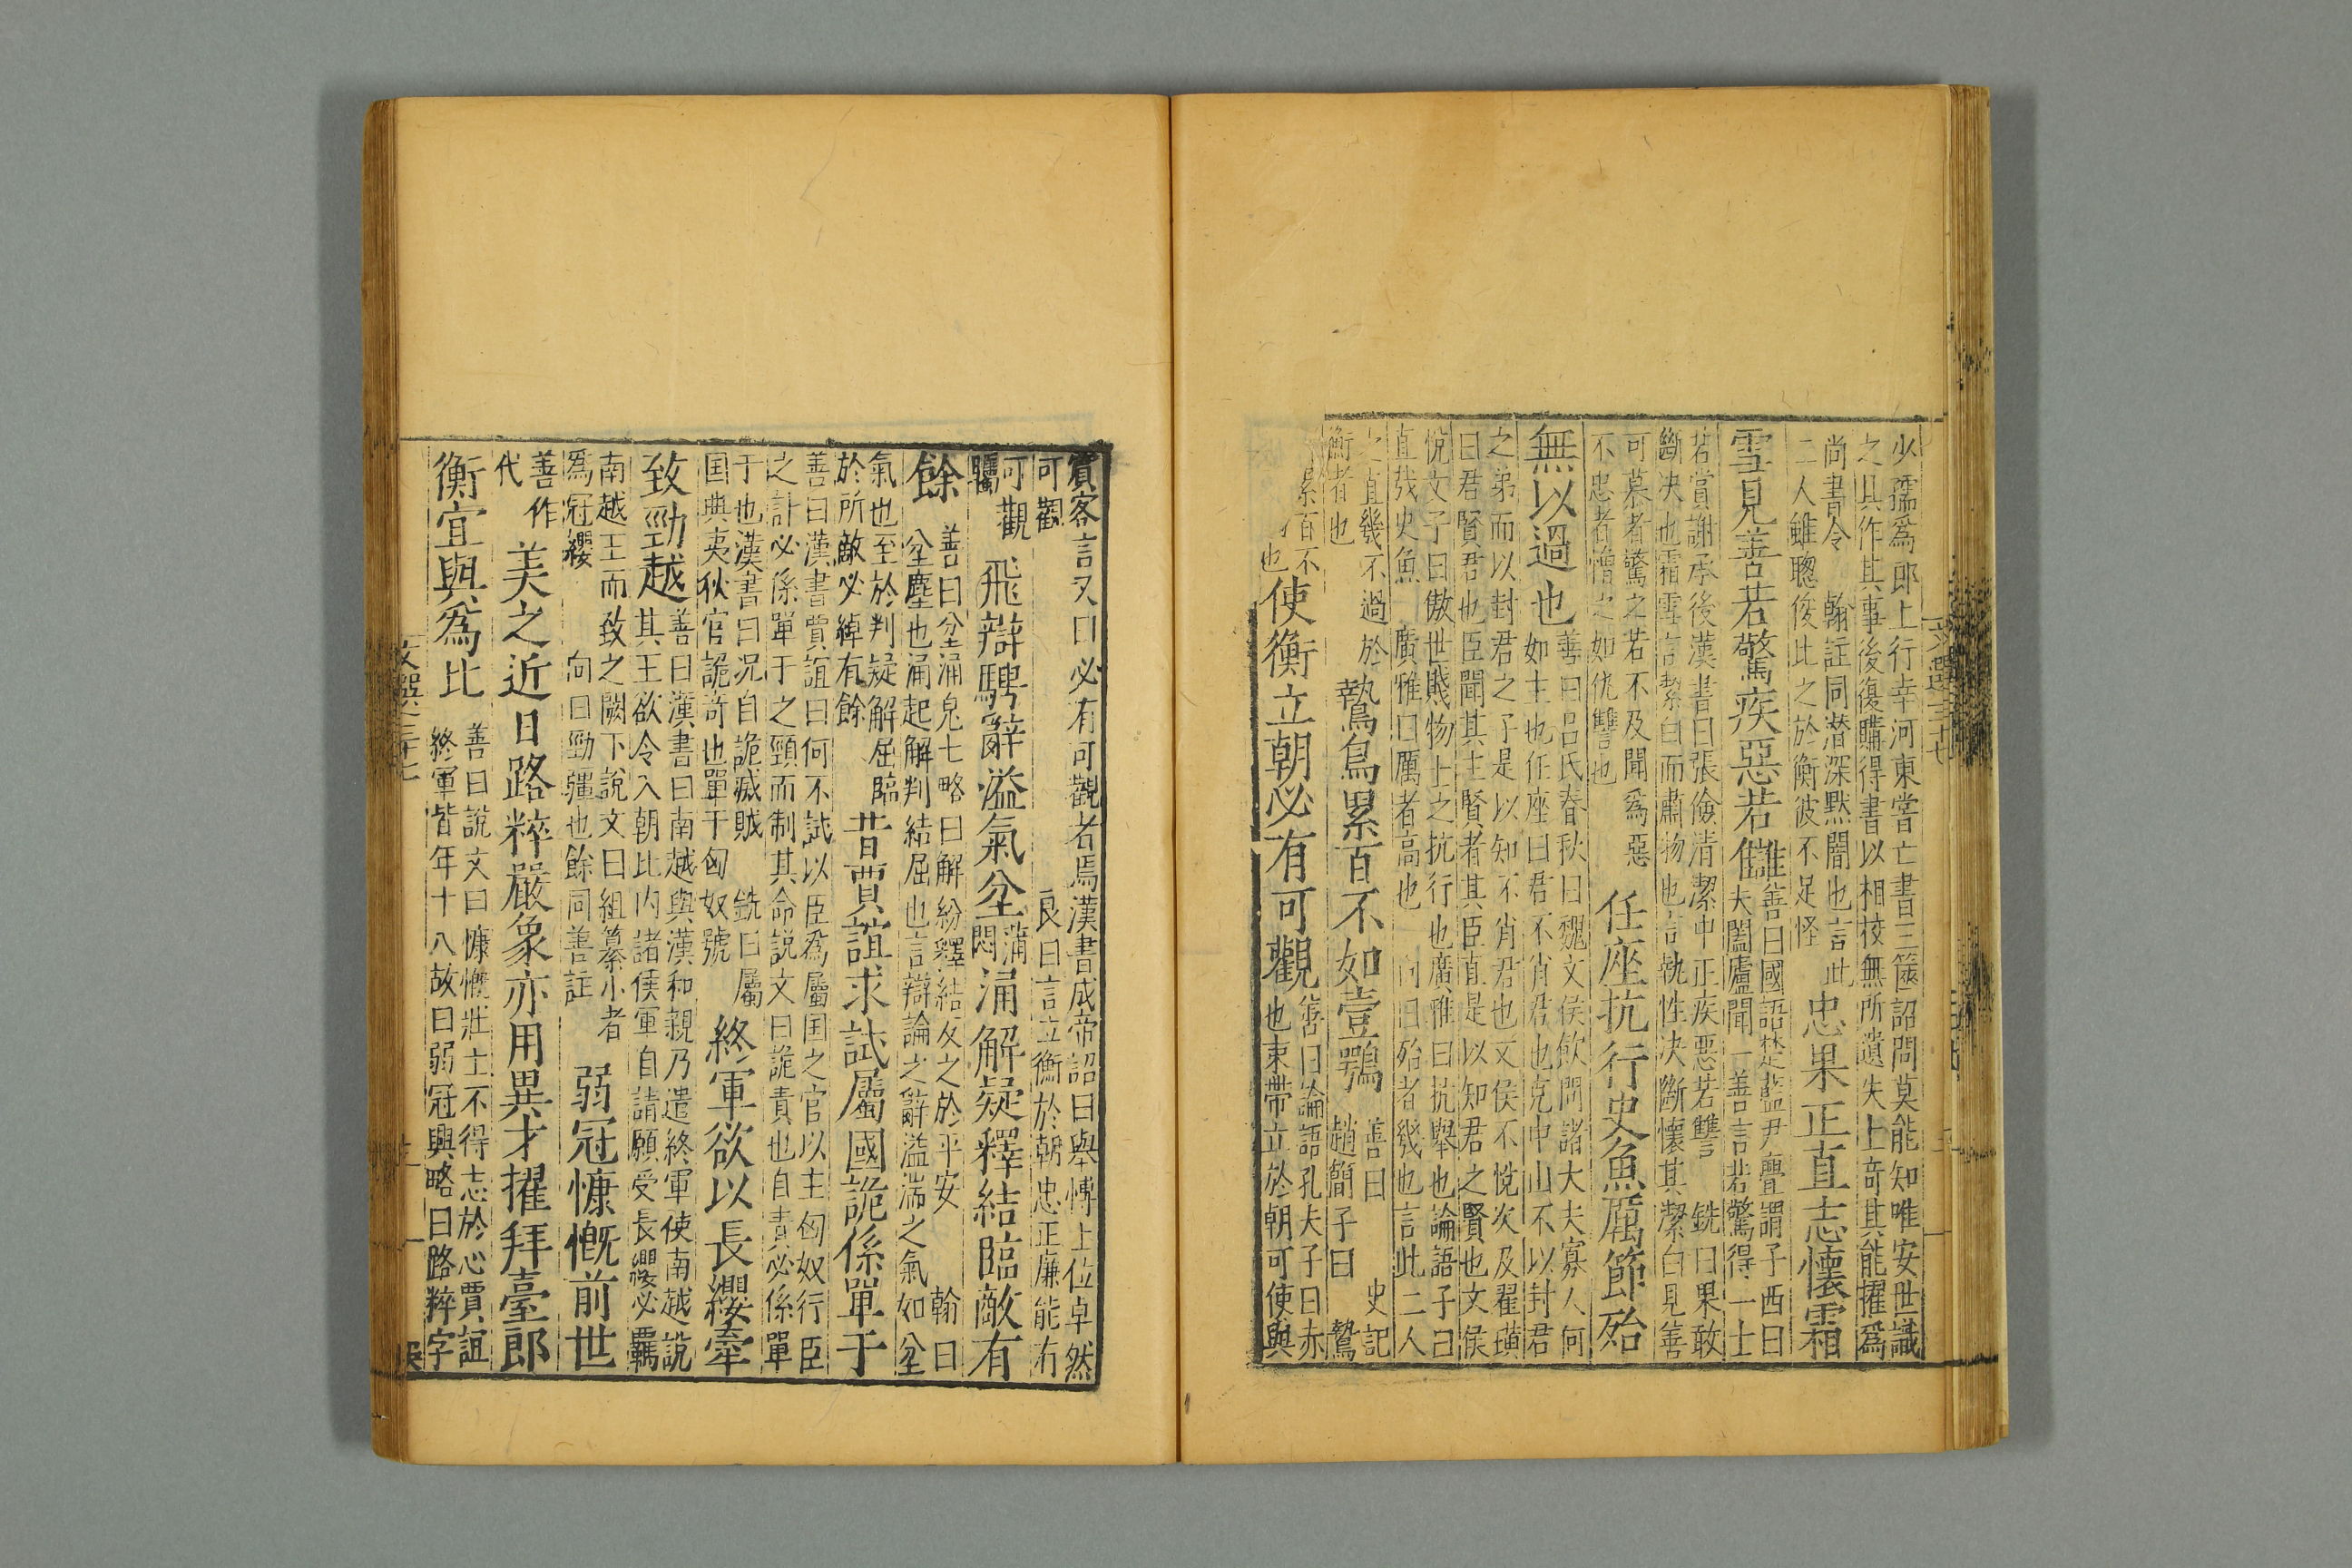 少孺為郎上行幸河東嘗亡書三篋詔問莫能知唯安世識
之具作其事後復購得書以相校無所遺失上奇其能擢為
尚書令 翰註同潛深默闇也言此
二人雖聰俊比之於衡彼不足怪
忠果正直志懷霜
雪見善若驚疾惡若讎
善曰國語楚藍尹亹謂子西曰
夫闔廬聞一善言若驚得一士
若賞謝承後漢書曰張儉清潔中正疾惡若讐 銑曰果敢
斷决也霜雪言潔白而肅物也言執性决斷懷其潔白見善
可慕者驚之若不及聞為惡
不忠者憎之如仇讐也
任座抗行史魚厲節殆
無以過也
善曰吕氏春秋曰魏文侯飲問諸大夫寡人何
如主也任座曰君不肖君也克中山不以封君
之弟而以封君之子是以知不肖君也文侯不悅次及翟璜
曰君賢君也臣聞其主賢者其臣直是以知君之賢也文侯
悅文子曰傲世賤物士之抗行也廣雅曰抗舉也論語子曰
直哉史魚 廣雅曰厲者高也 向曰殆者幾也言此二人
之直幾不過於
衡者也
鷙鳥累百不如壹鶚
善曰 史記
趙簡子曰 鷙
累百不
也
使衡立朝必有可觀
善曰論語孔夫子曰赤
也束帶立於朝可使與
賓客言又曰必有可觀者焉漢書成帝詔曰舉博士位卓然
可觀 良曰言立衡於朝忠正廉能有
可觀
矚
飛辯騁辭溢氣坌
蒲
悶
涌解疑釋結臨敵有
餘
善曰坌涌皃七略曰解紛釋結反之於平安 翰曰
坌塵也涌起解判結屈也言辯論之辭溢湍之氣如坌
氣也至於判疑解屈臨
於所敵必綽有餘
昔賈誼求試屬國詭係單于
善曰漢書賈誼曰何不試以臣為屬国之官以主匈奴行臣
之計必係單于之頸而制其命説文曰詭責也自責必係單
于也漢書曰况自詭滅賊 銑曰屬
国典夷狄官詭奇也單于匈奴號
終軍欲以長纓牽
致勁越
善曰漢書曰南越與漢和親乃遣終軍使南越說
其王欲令入朝比内諸侯軍自請願受長纓必羈
南越王而致之闕下說文曰組纂小者
為冠纓 向曰勁彊也餘同善註
弱冠慷慨前世
善作
代
美之近日路粹嚴象亦用異才擢拜臺郎
衡宜與為比
善曰說文曰慷慨壯士不得志於心賈誼
終軍皆年十八故曰弱冠典略曰路粹字